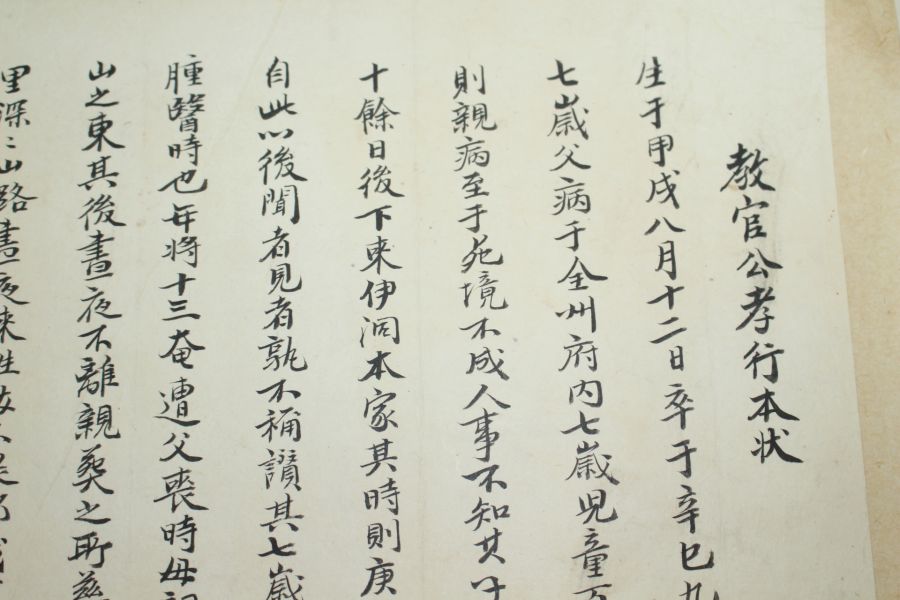 教官公孝行本状
生于甲戌八月十二日卒于辛巳九
七歲父病于全州府内七歲児童
則親病至于死境不成人事不知其
十餘日後下来伊洞本家其時則庚
自此以後聞者見者孰不稱讃其七歲
腫醫時也年將十三奄遭父喪時母
山之東其後晝夜不離親葬之所
里深〻山路晝夜来